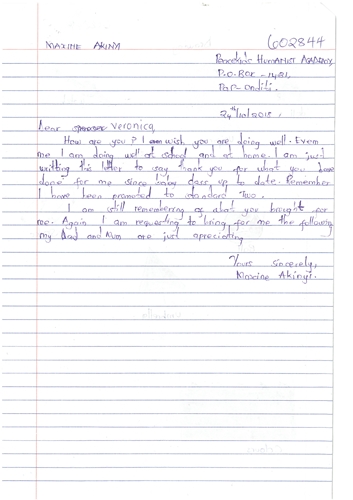 MAXINE AKINYI
602844
HUMANIST ACADEMY,
P.O. BOX - 1481,
PAP-ONDITI.
24th 2018.
Dear Sponsor Veronica,
How are you? I am wish you are doing well. Even
me I am doing well at school and at home. I am just
writting the letter to say thank you for what you have
done for me since baby class up to date. Remember
I have been promoted to standard Two.
I am still remembering of what you brought for
me. Again I am requesting to bring for me the following
my Dad and Mum are just apreciating
Yours Sincerely,
Maxine Akinyi.